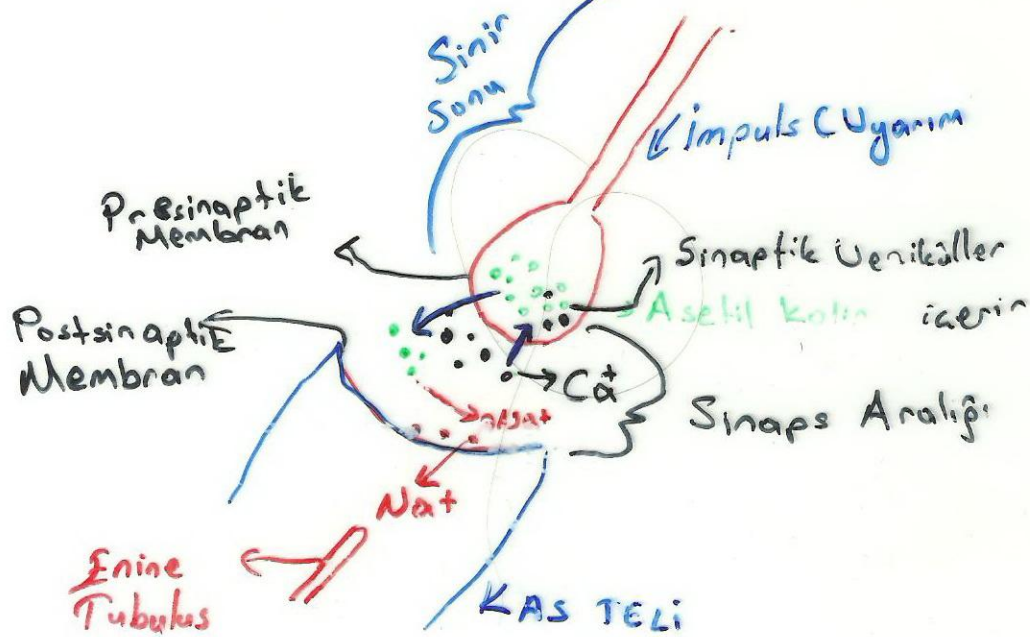 Sinir
Sonu
İmpuls (Uyarım
Presinaptik
Membran
Sinaptik Veniküller
Asetil kolin icerin
Postsinaptik
Membran
Ca+
Sinaps Aralığı
Na+
Na+
Enine
Tubulus
KAS TELİ